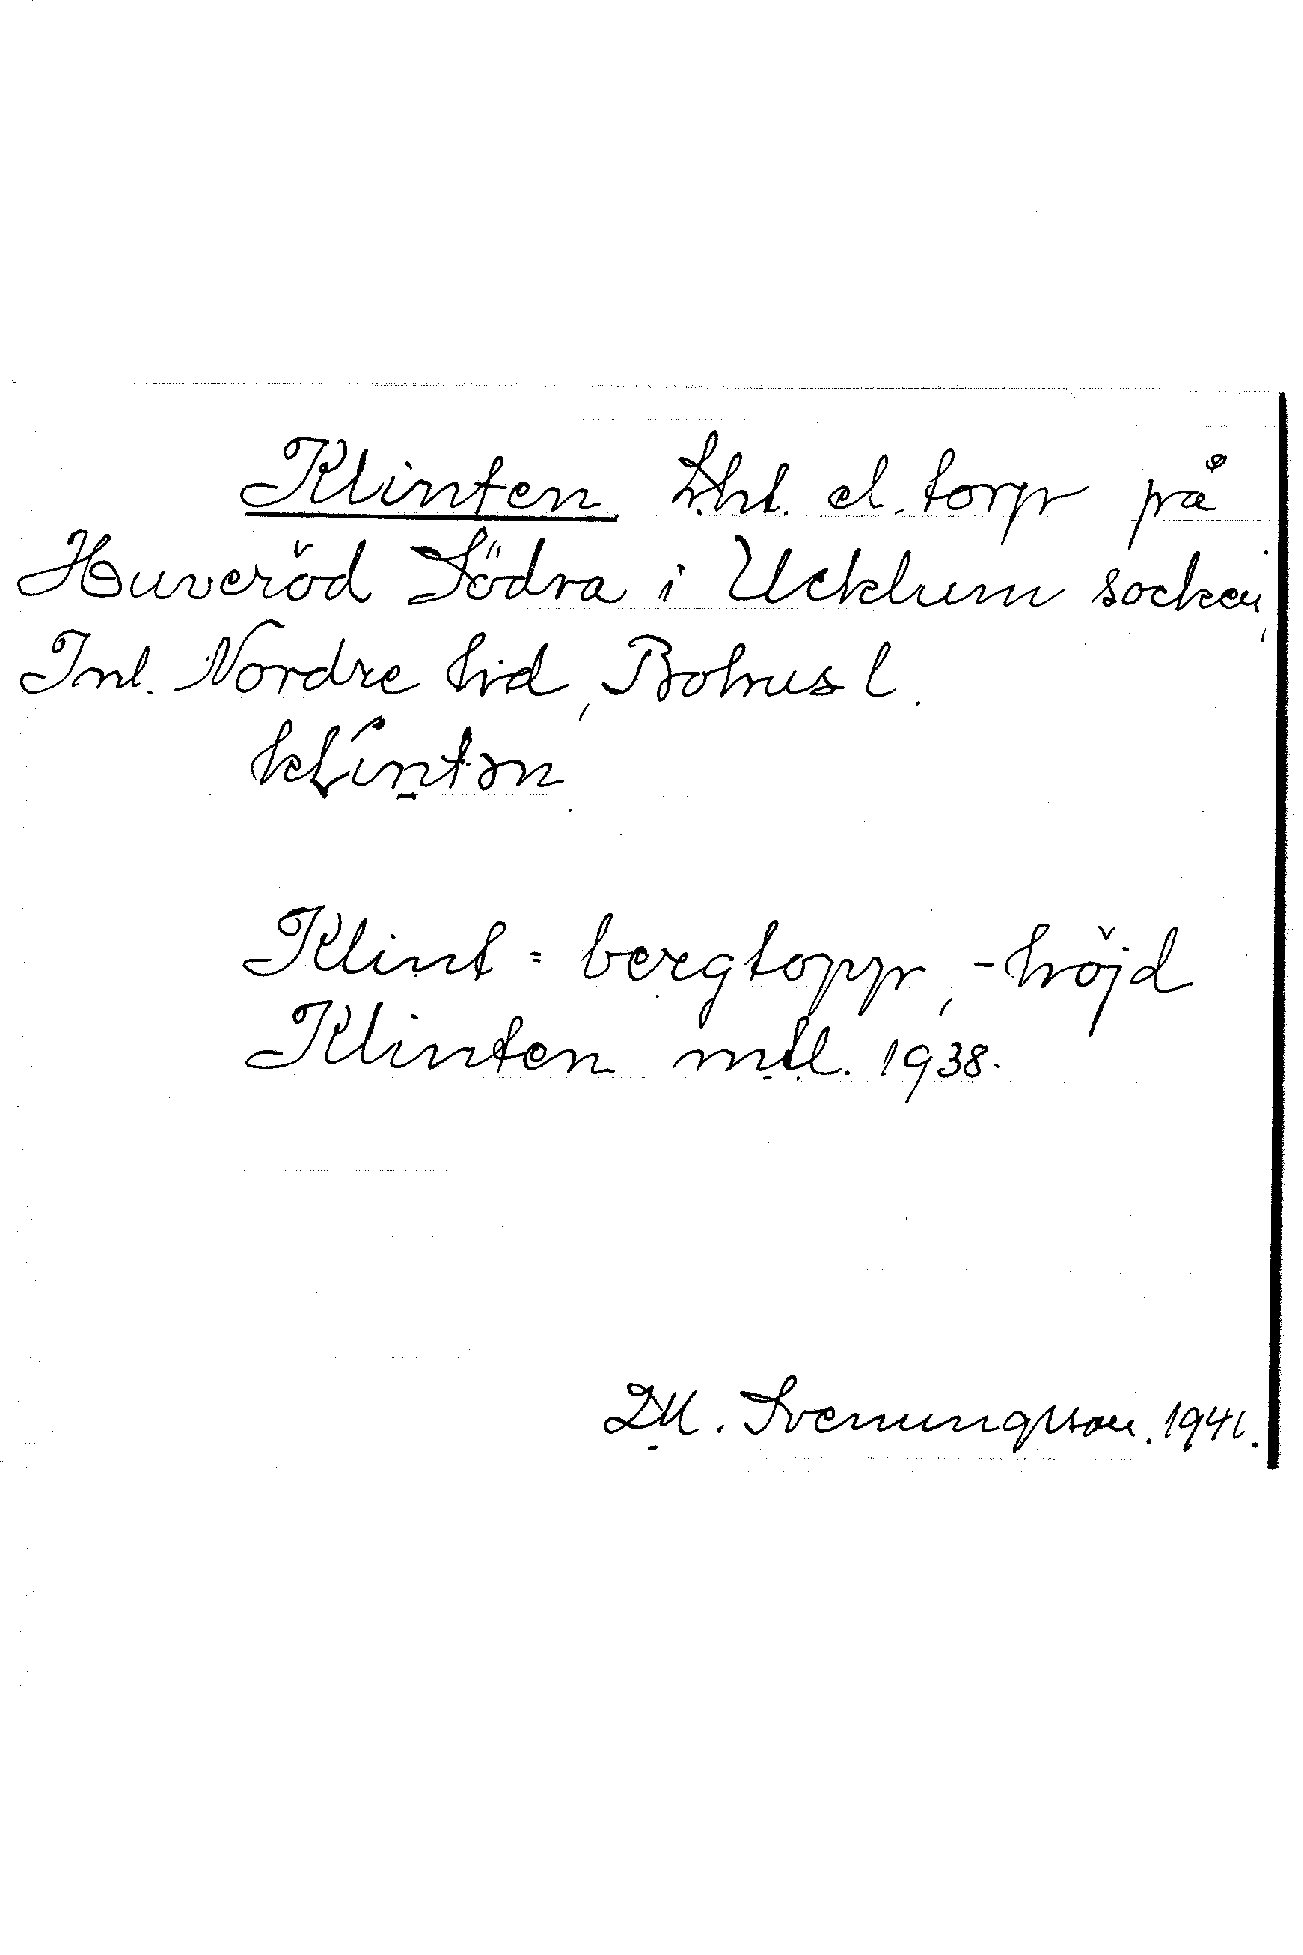 Klinten Lht. el. torp på
Huveröd Södra i Ucklum socken,
Inl. Nordre hd, Bohusl.
klíntən
Klint = bergtopp, -höjd
Klinten mtl. 1938.
D.M. Svenungsson. 1941.